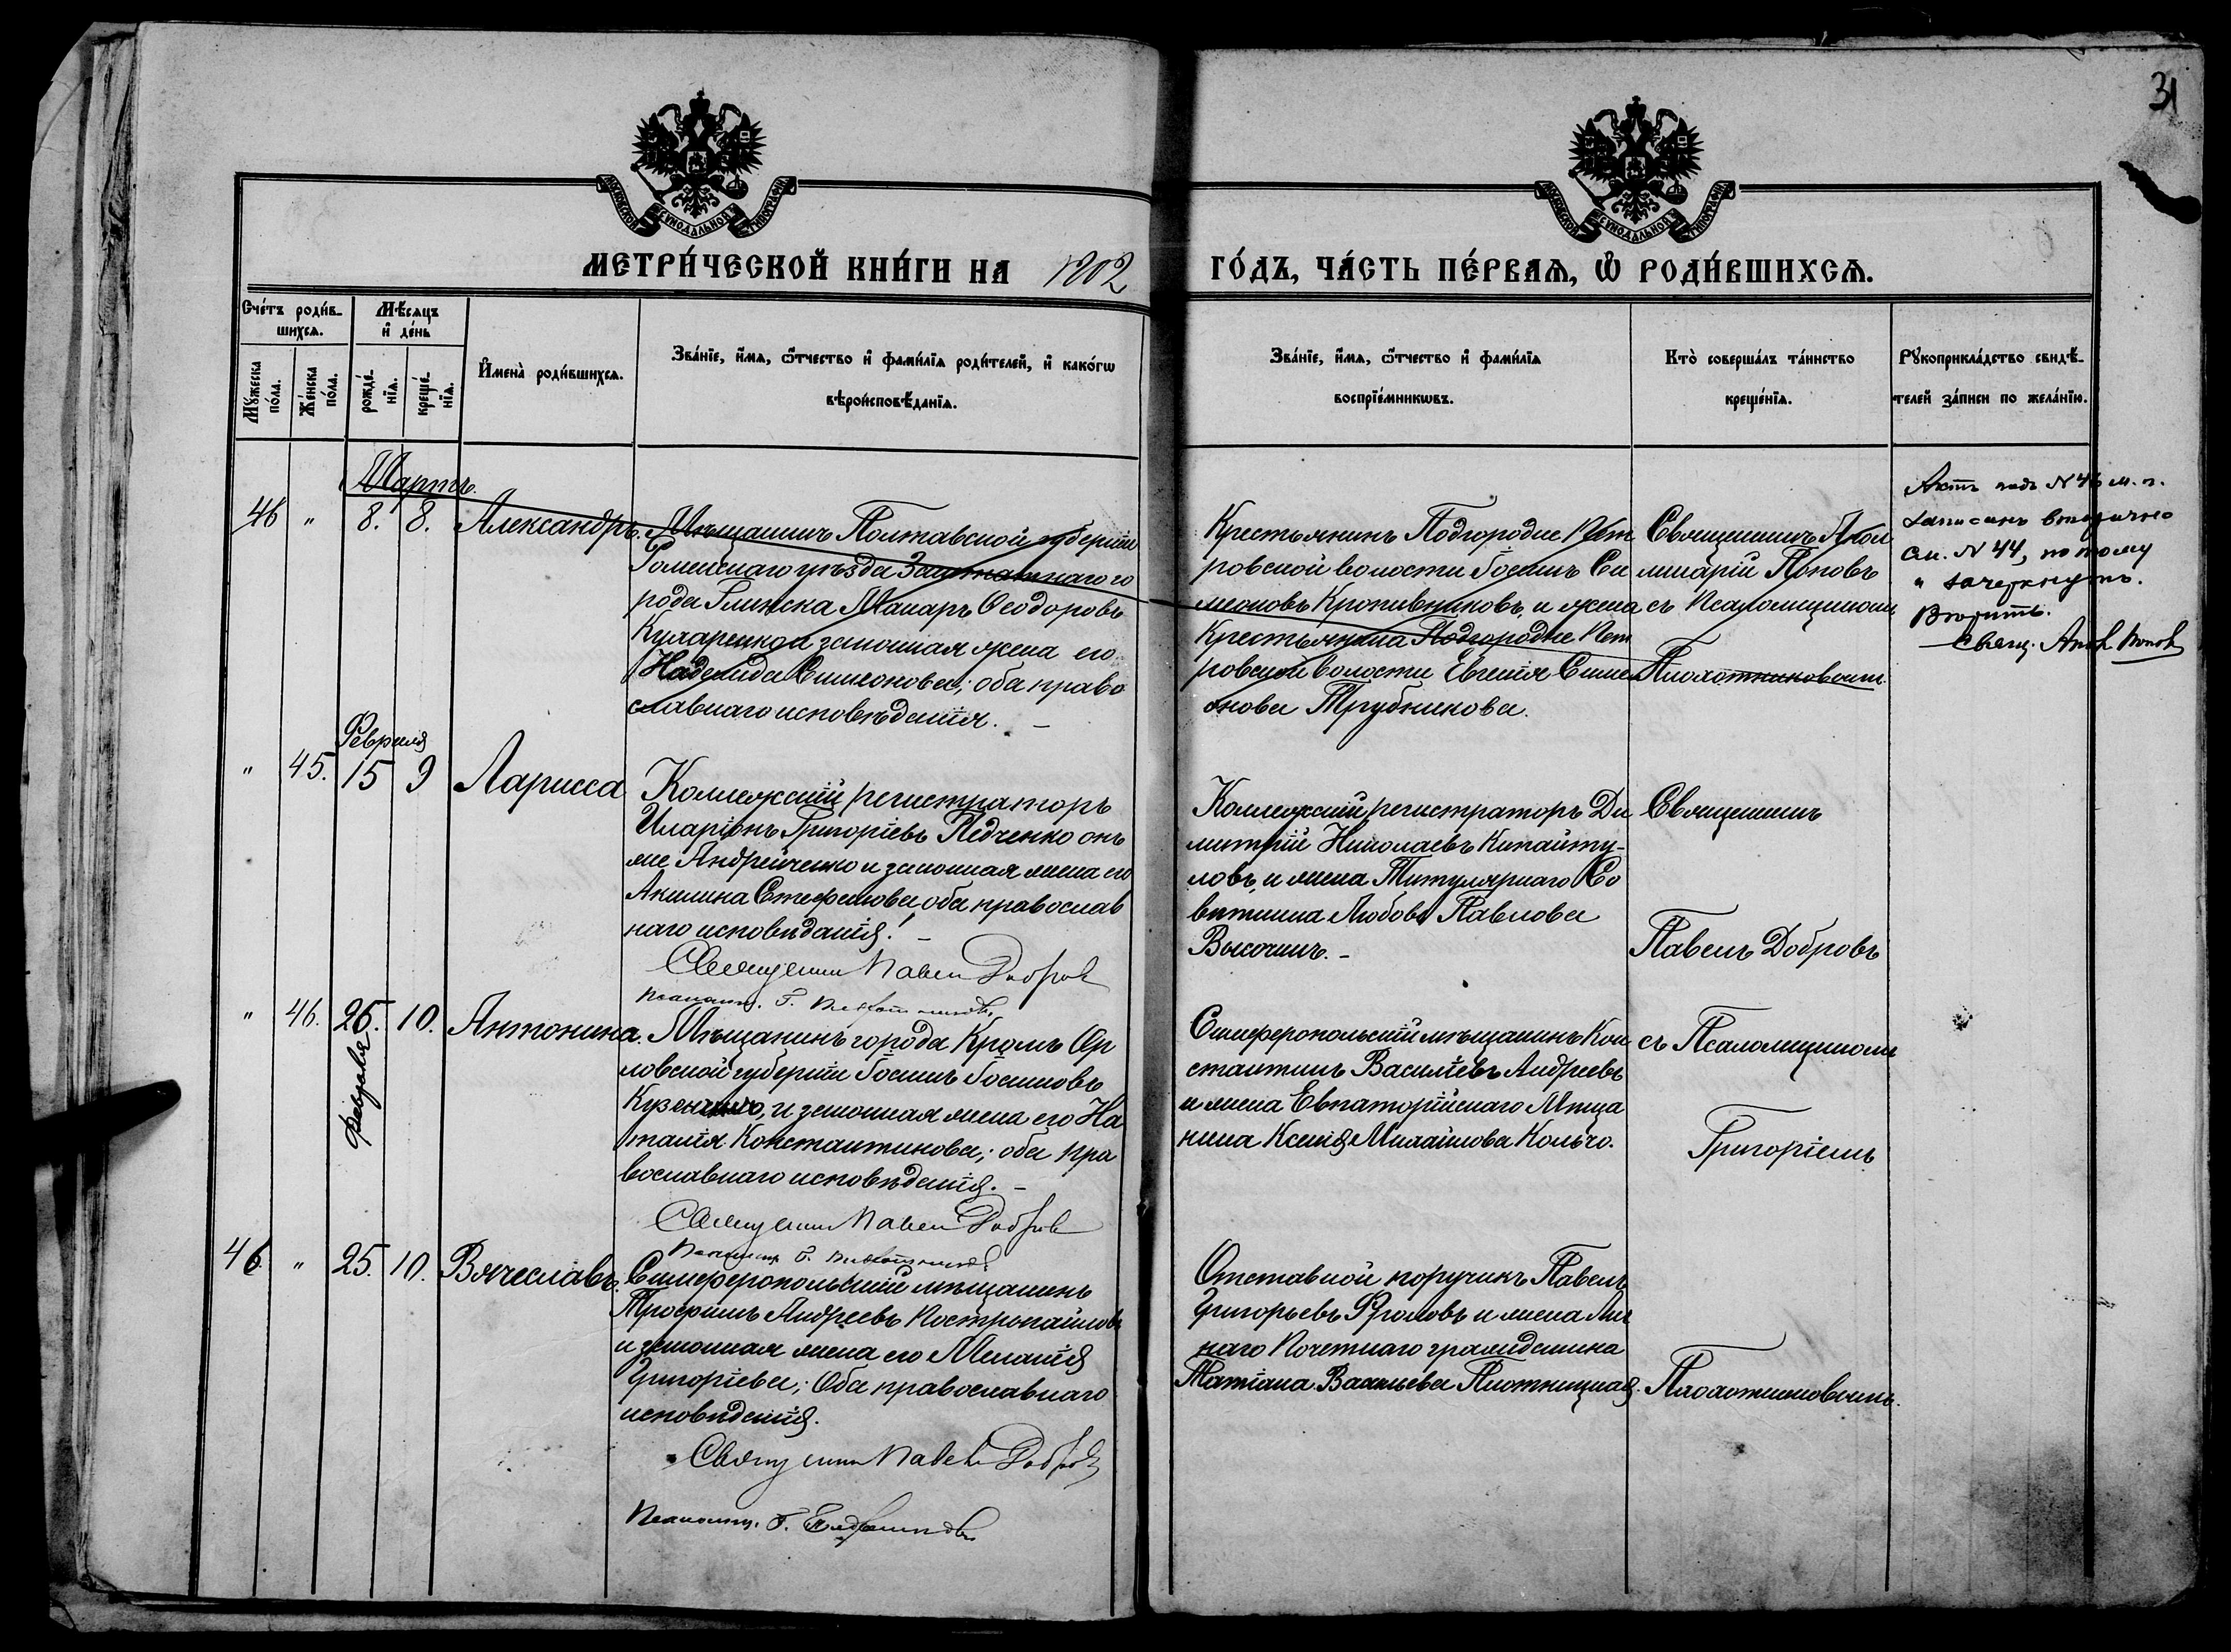 31
МОСКОВСКОЙ СѴНОДАЛЬНОЙ ТИПОГРАФІИ
МОСКОВСКОЙ СѴНОДАЛЬНОЙ ТИПОГРАФІИ
МЕТРИ́ЧЕСКОЙ КНИ́ГИ НА 1902
ГО́ДЪ, ЧА́СТЬ ПЕ́РВАѦ, Ѡ҆ РОДИ́ВШИХСѦ.
Сче́тъ роди́в-
шихсѧ.
Мꙋ́жеска
по́ла.
Же́нска
по́ла.
Мѣ́сѧцъ
и҆ де́нь
рожде́-
нїѧ.
креще́-
нїѧ.
И҆мена̀ роди́вшихсѧ.
Зва́нїе, и҆́мѧ, ѻ҆́тчество и҆ фами́лїѧ роди́телей, и҆ како́гѡ
вѣроисповѣ́данїѧ.
Зва́нїе, и҆́мѧ, ѻ҆́тчество и҆ фами́лїѧ
воспрїе́мникѡвъ.
Кто̀ соверша́лъ та́инство
креще́нїѧ.
Рꙋкоприкла́дство свидѣ́-
телей за́писи по жела́нїю.
Мартъ.
46 " 8. 8. Александръ.
Мѣщанинъ Полтавской губерніи
Роменскаго уѣзда Заштатнаго го
рода Глинска Макаръ Ѳеодоровъ
и законная жена его
Надежда Симеонова; оба право
славнаго исповѣданія. –
Крестьянинъ Подгородне Пет
ровской волости Іосифъ Си
меоновъ Кропивниковъ, и жена
Крестьянина Подгородне Пет
ровской волости Евгенія Симе
онова Трубникова.
Священникъ Апол
линарій Поповъ
съ Псаломщикомъ
Плохотниковымъ.
Актъ подъ N 46 м. п.
записанъ вторично
см. N 44, потому
и зачеркнутъ.
Свящ. Апол. Поповъ
Февраля
" 45. 15 9 Ларисса
Коллежскій регистраторъ
Иларіонъ Григоріевъ Педченко онъ
же Андрейченко и законная жена его
Акилина Стефанова оба православ
наго исповѣданія! –
Священникъ Павелъ Добровъ
Псаломщ. Г. Плохотниковъ.
Коллежскій регистраторъ Ди
митрій Николаевъ Китайту-
ловъ, и жена Титулярнаго Со
вѣтника Любовь Павлова
Высочинъ. –
Священникъ
Павелъ Добровъ
" 46. 26. 10. Антонина.
февраля
Мѣщанинъ города Кромъ Ор
ловской губерніи Іосифъ Іосифовъ
и законная жена его На
талія Константинова; оба пра
вославнаго исповѣданія. –
Священникъ Павелъ Добровъ
Псаломщ. Г. Плохотниковъ.
Симферопольскій мѣщанинъ Кон
стантинъ Василіевъ Андреевъ
и жена Евпаторійскаго Мѣща
нина Ксенія Михайлова Кольчо.
съ Псаломщикомъ
Григоріемъ
46. " 25. 10. Вячеславъ.
Симферопольскій мѣщанинъ
Трофимъ Андреевъ
и законная жена его Меланія
Григоріева; Оба православнаго
исповѣданія.
Священникъ Павелъ Добровъ
Псаломщ. Г.
Отставной поручикъ Павелъ
Григорьевъ Фроловъ и жена Лич
наго Почетнаго гражданина
Татіана Васильева Плотницкая.
Плохотниковымъ.